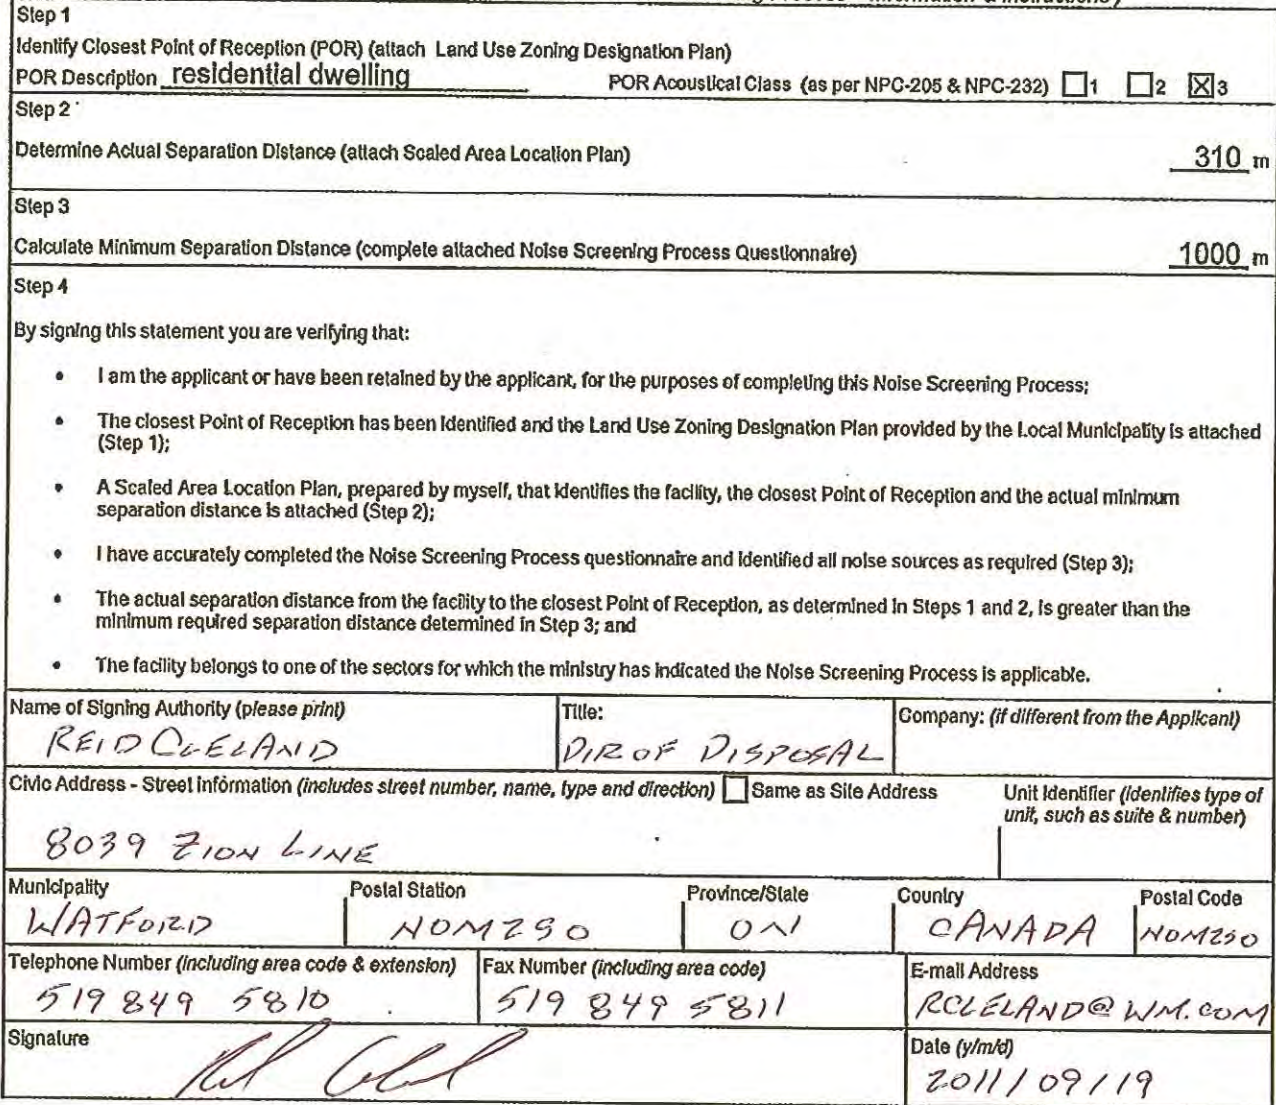 Step 1
Identify Closest Point of Reception (POR) (attach Land Use Zoning Designation Plan)
POR Description residential dwelling POR Acoustical Class (as per NPC-205 & NPC-232) ☐1 ☐2 ☒3
Step 2
Determine Actual Separation Distance (attach Scaled Area Location Plan) 310 m
Step 3
Calculate Minimum Separation Distance (complete attached Noise Screening Process Questionnaire) 1000 m
Step 4
By signing this statement you are verifying that:
• I am the applicant or have been retained by the applicant, for the purposes of completing this Noise Screening Process;
• The closest Point of Reception has been identified and the Land Use Zoning Designation Plan provided by the Local Municipality is attached
(Step 1);
• A Scaled Area Location Plan, prepared by myself, that identifies the facility, the closest Point of Reception and the actual minimum
separation distance is attached (Step 2);
• I have accurately completed the Noise Screening Process questionnaire and identified all noise sources as required (Step 3);
• The actual separation distance from the facility to the closest Point of Reception, as determined in Steps 1 and 2, is greater than the
minimum required separation distance determined in Step 3; and
• The facility belongs to one of the sectors for which the ministry has indicated the Noise Screening Process is applicable.
Name of Signing Authority (please print) Title: Company: (if different from the Applicant)
REID CLELAND DIR OF DISPOSAL
Civic Address - Street information (includes street number, name, type and direction) ☐ Same as Site Address Unit Identifier (identifies type of
unit, such as suite & number)
8039 ZION LINE
Municipality Postal Station Province/State Country Postal Code
WATFORD N0M2S0 ON CANADA N0M2S0
Telephone Number (including area code & extension) Fax Number (including area code) E-mail Address
519 849 5810 519 849 5811 RCLELAND@WM.COM
Signature Date (y/m/d)
2011/09/19